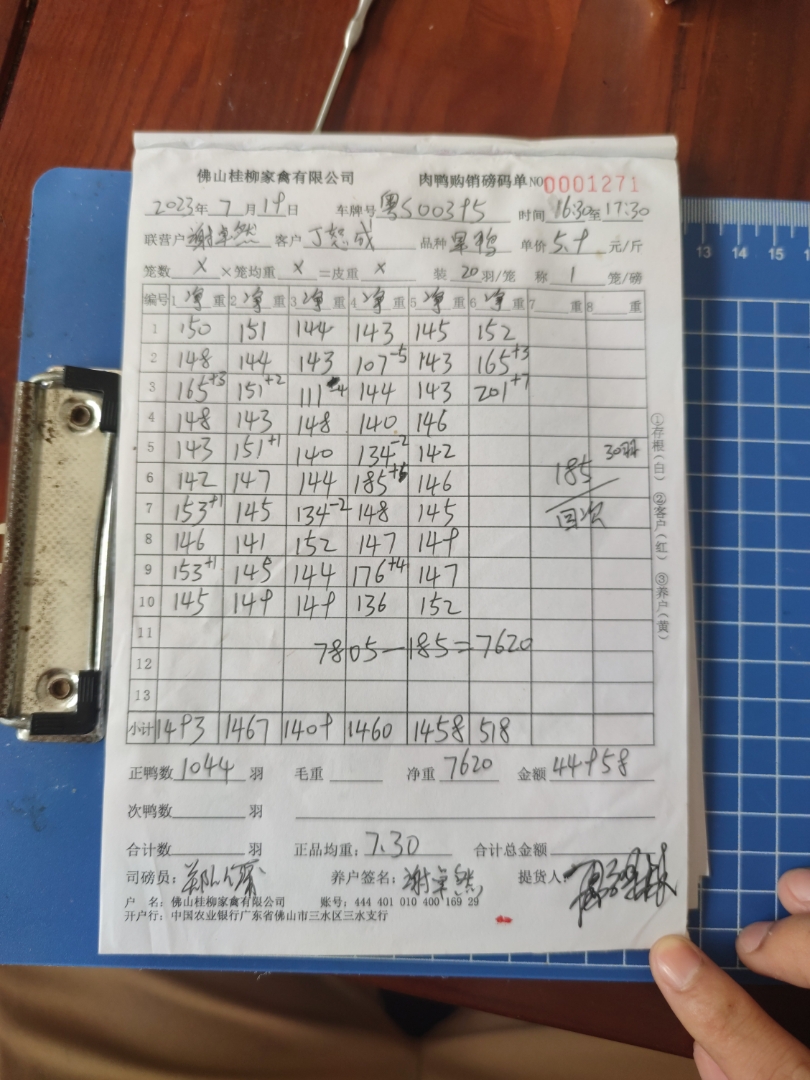 佛山桂柳家禽有限公司 肉鸭购销磅码单 NO 0001271
2023年 7 月 19 日 车牌号 粤S00395 时间 16:30至17:30
联营户 谢卓然 客户 丁恕成 品种 单价 5.9 元/斤
笼数 x ×笼均重 x =皮重 x 装 20 羽/笼 称 1 笼/磅
编号 1 净 重 2 净 重 3 净 重 4 净 重 5 净 重 6 净 重 7 重 8 重
1 150 151 144 143 145 152
2 148 144 143 107-5 143 165+3
3 165+3 151+2 111-4 144 143 201+7
4 148 143 148 140 146
5 143 151+1 140 134-2 142
6 142 147 144 185+6 146
7 153+1 145 134-2 148 145
8 146 141 152 147 149
9 153+1 145 144 176+4 147
10 145 149 149 136 152
11
12
13
7805-185=7620
小计 1493 1467 1409 1460 1458 518
185 30羽
回次
①存根(白) ②客户(红) ③养户(黄)
正鸭数 1044 羽 毛重 净重 7620 金额 44958
次鸭数 羽
合计数 羽 正品均重: 7.30 合计总金额
司磅员: 养户签名: 谢卓然 提货人:
户 名: 佛山桂柳家禽有限公司 账号: 444 401 010 400 169 29
开户行: 中国农业银行广东省佛山市三水区三水支行
13 14 15
13 14